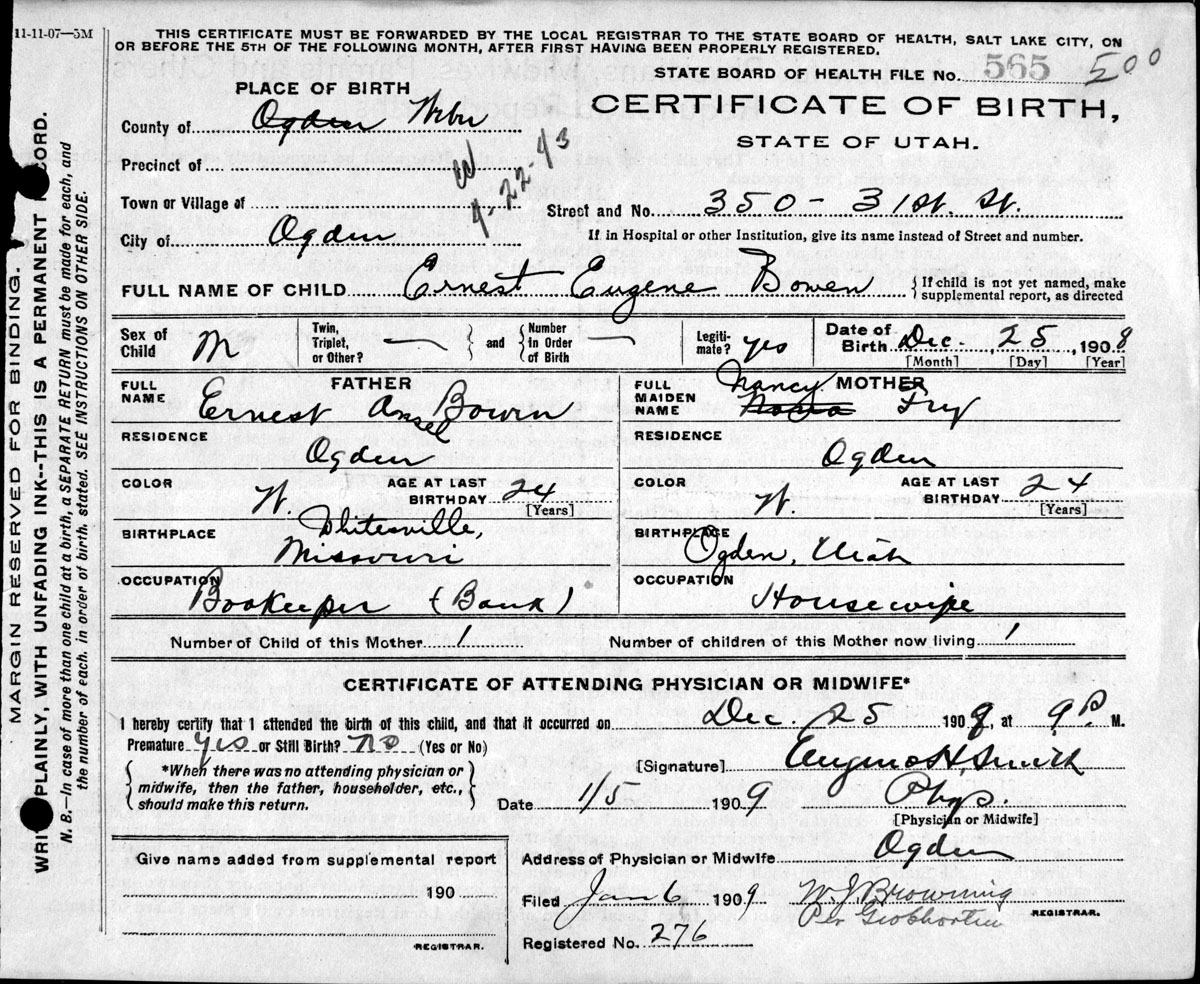 11-11-07—5M
THIS CERTIFICATE MUST BE FORWARDED BY THE LOCAL REGISTRAR TO THE STATE BOARD OF HEALTH, SALT LAKE CITY, ON
OR BEFORE THE 5TH OF THE FOLLOWING MONTH, AFTER FIRST HAVING BEEN PROPERLY REGISTERED.
STATE BOARD OF HEALTH FILE No. 565 500
PLACE OF BIRTH
CERTIFICATE OF BIRTH,
STATE OF UTAH.
County of Ogden Weber
Precinct of
Town or Village of
Street and No. 350 - 31st. St.
City of Ogden
If in Hospital or other Institution, give its name instead of Street and number.
FULL NAME OF CHILD Ernest Eugene Bowen
If child is not yet named, make
supplemental report, as directed
Sex of Child M Twin, Triplet, or Other? — and Number in Order of Birth — Legiti- mate? yes Date of Birth Dec. 25, 1908
[Month] [Day] [Year]
FATHER
FULL NAME Ernest Ansel Bowen
RESIDENCE Ogden
COLOR W. AGE AT LAST BIRTHDAY 24 [Years]
BIRTHPLACE Whitesville, Missouri
OCCUPATION Bookeeper (Bank)
MOTHER
FULL MAIDEN NAME Nancy Fry
RESIDENCE Ogden
COLOR W. AGE AT LAST BIRTHDAY 24 [Years]
BIRTHPLACE Ogden, Utah
OCCUPATION Housewife
Number of Child of this Mother 1 Number of children of this Mother now living 1
CERTIFICATE OF ATTENDING PHYSICIAN OR MIDWIFE*
I hereby certify that I attended the birth of this child, and that it occurred on Dec. 25 1908, at 9 P M.
Premature yes or Still Birth? no (Yes or No)
[Signature] Eugene H. Smith
*When there was no attending physician or
midwife, then the father, householder, etc.,
should make this return.
Date 1/5 1909 Phys.
[Physician or Midwife]
Give name added from supplemental report
190
REGISTRAR.
Address of Physician or Midwife Ogden
Filed Jan 6 1909 W. J. Browning
Per
REGISTRAR.
Registered No. 276
MARGIN RESERVED FOR BINDING.
WRITE PLAINLY, WITH UNFADING INK--THIS IS A PERMANENT RECORD.
N. B.—In case of more than one child at a birth, a SEPARATE RETURN must be made for each, and
the number of each, in order of birth, stated. SEE INSTRUCTIONS ON OTHER SIDE.